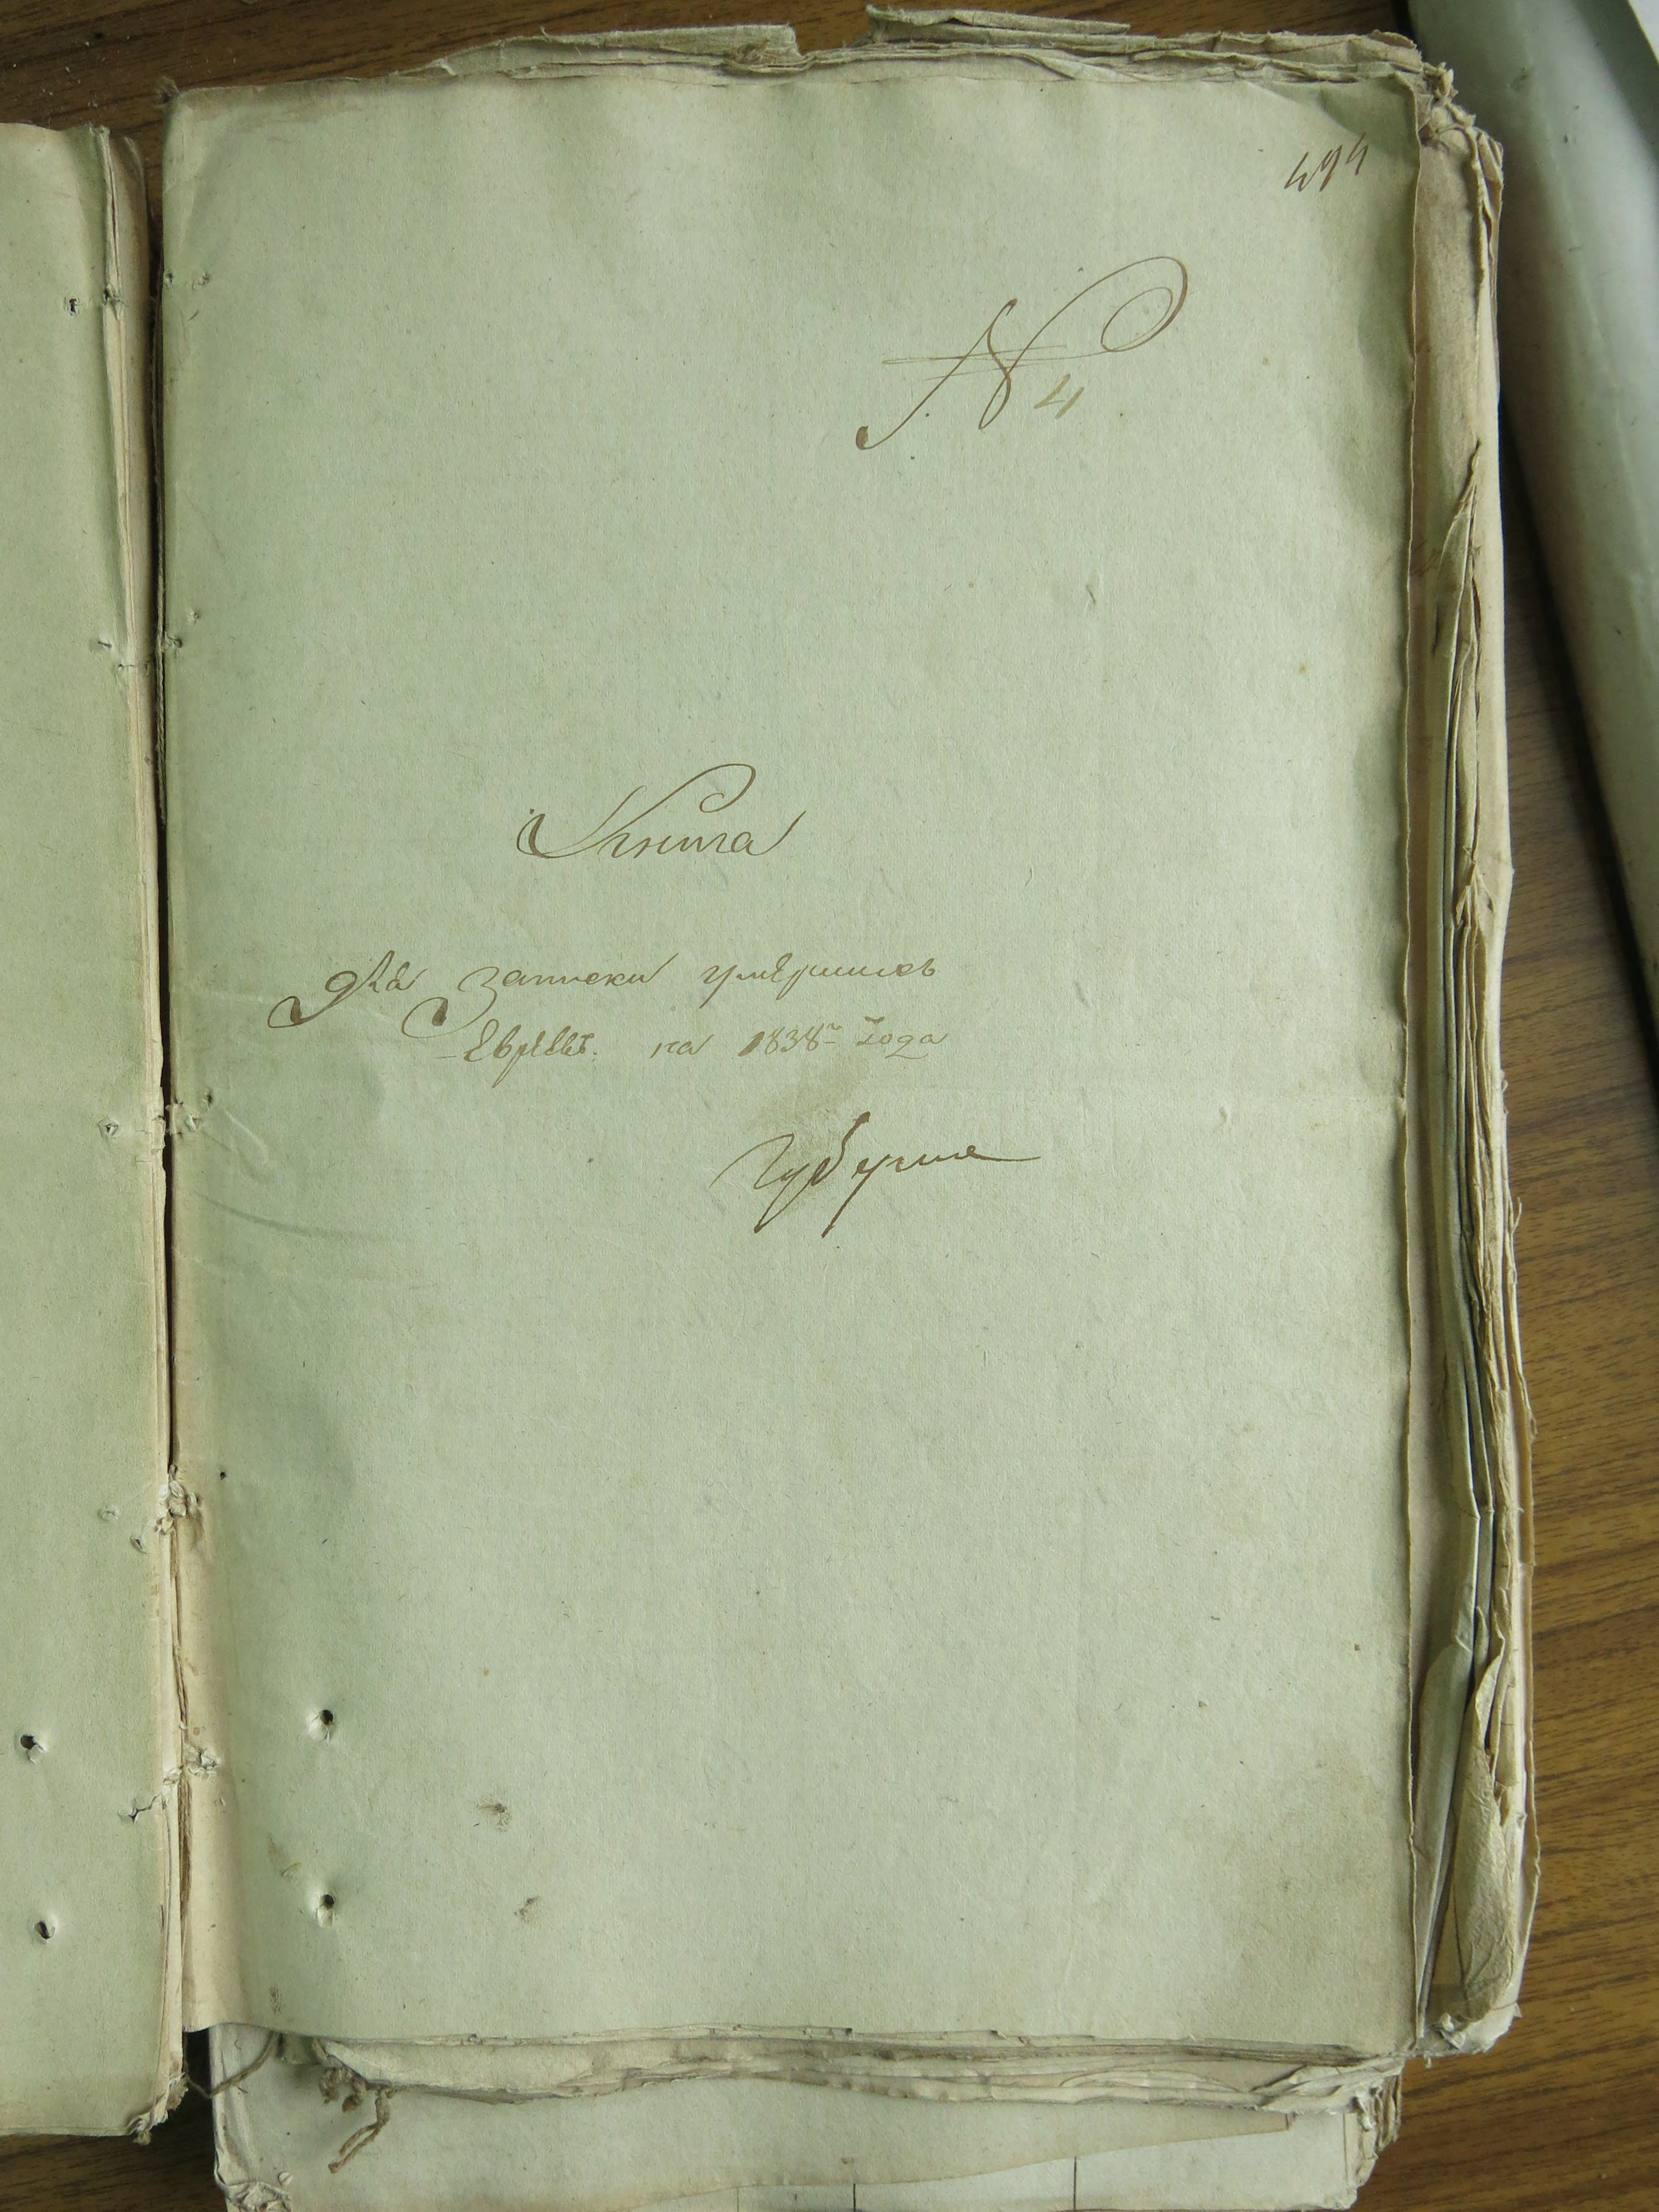 494
№ 4
Книга
для записки умершихъ
Евреевъ на 1838й Года